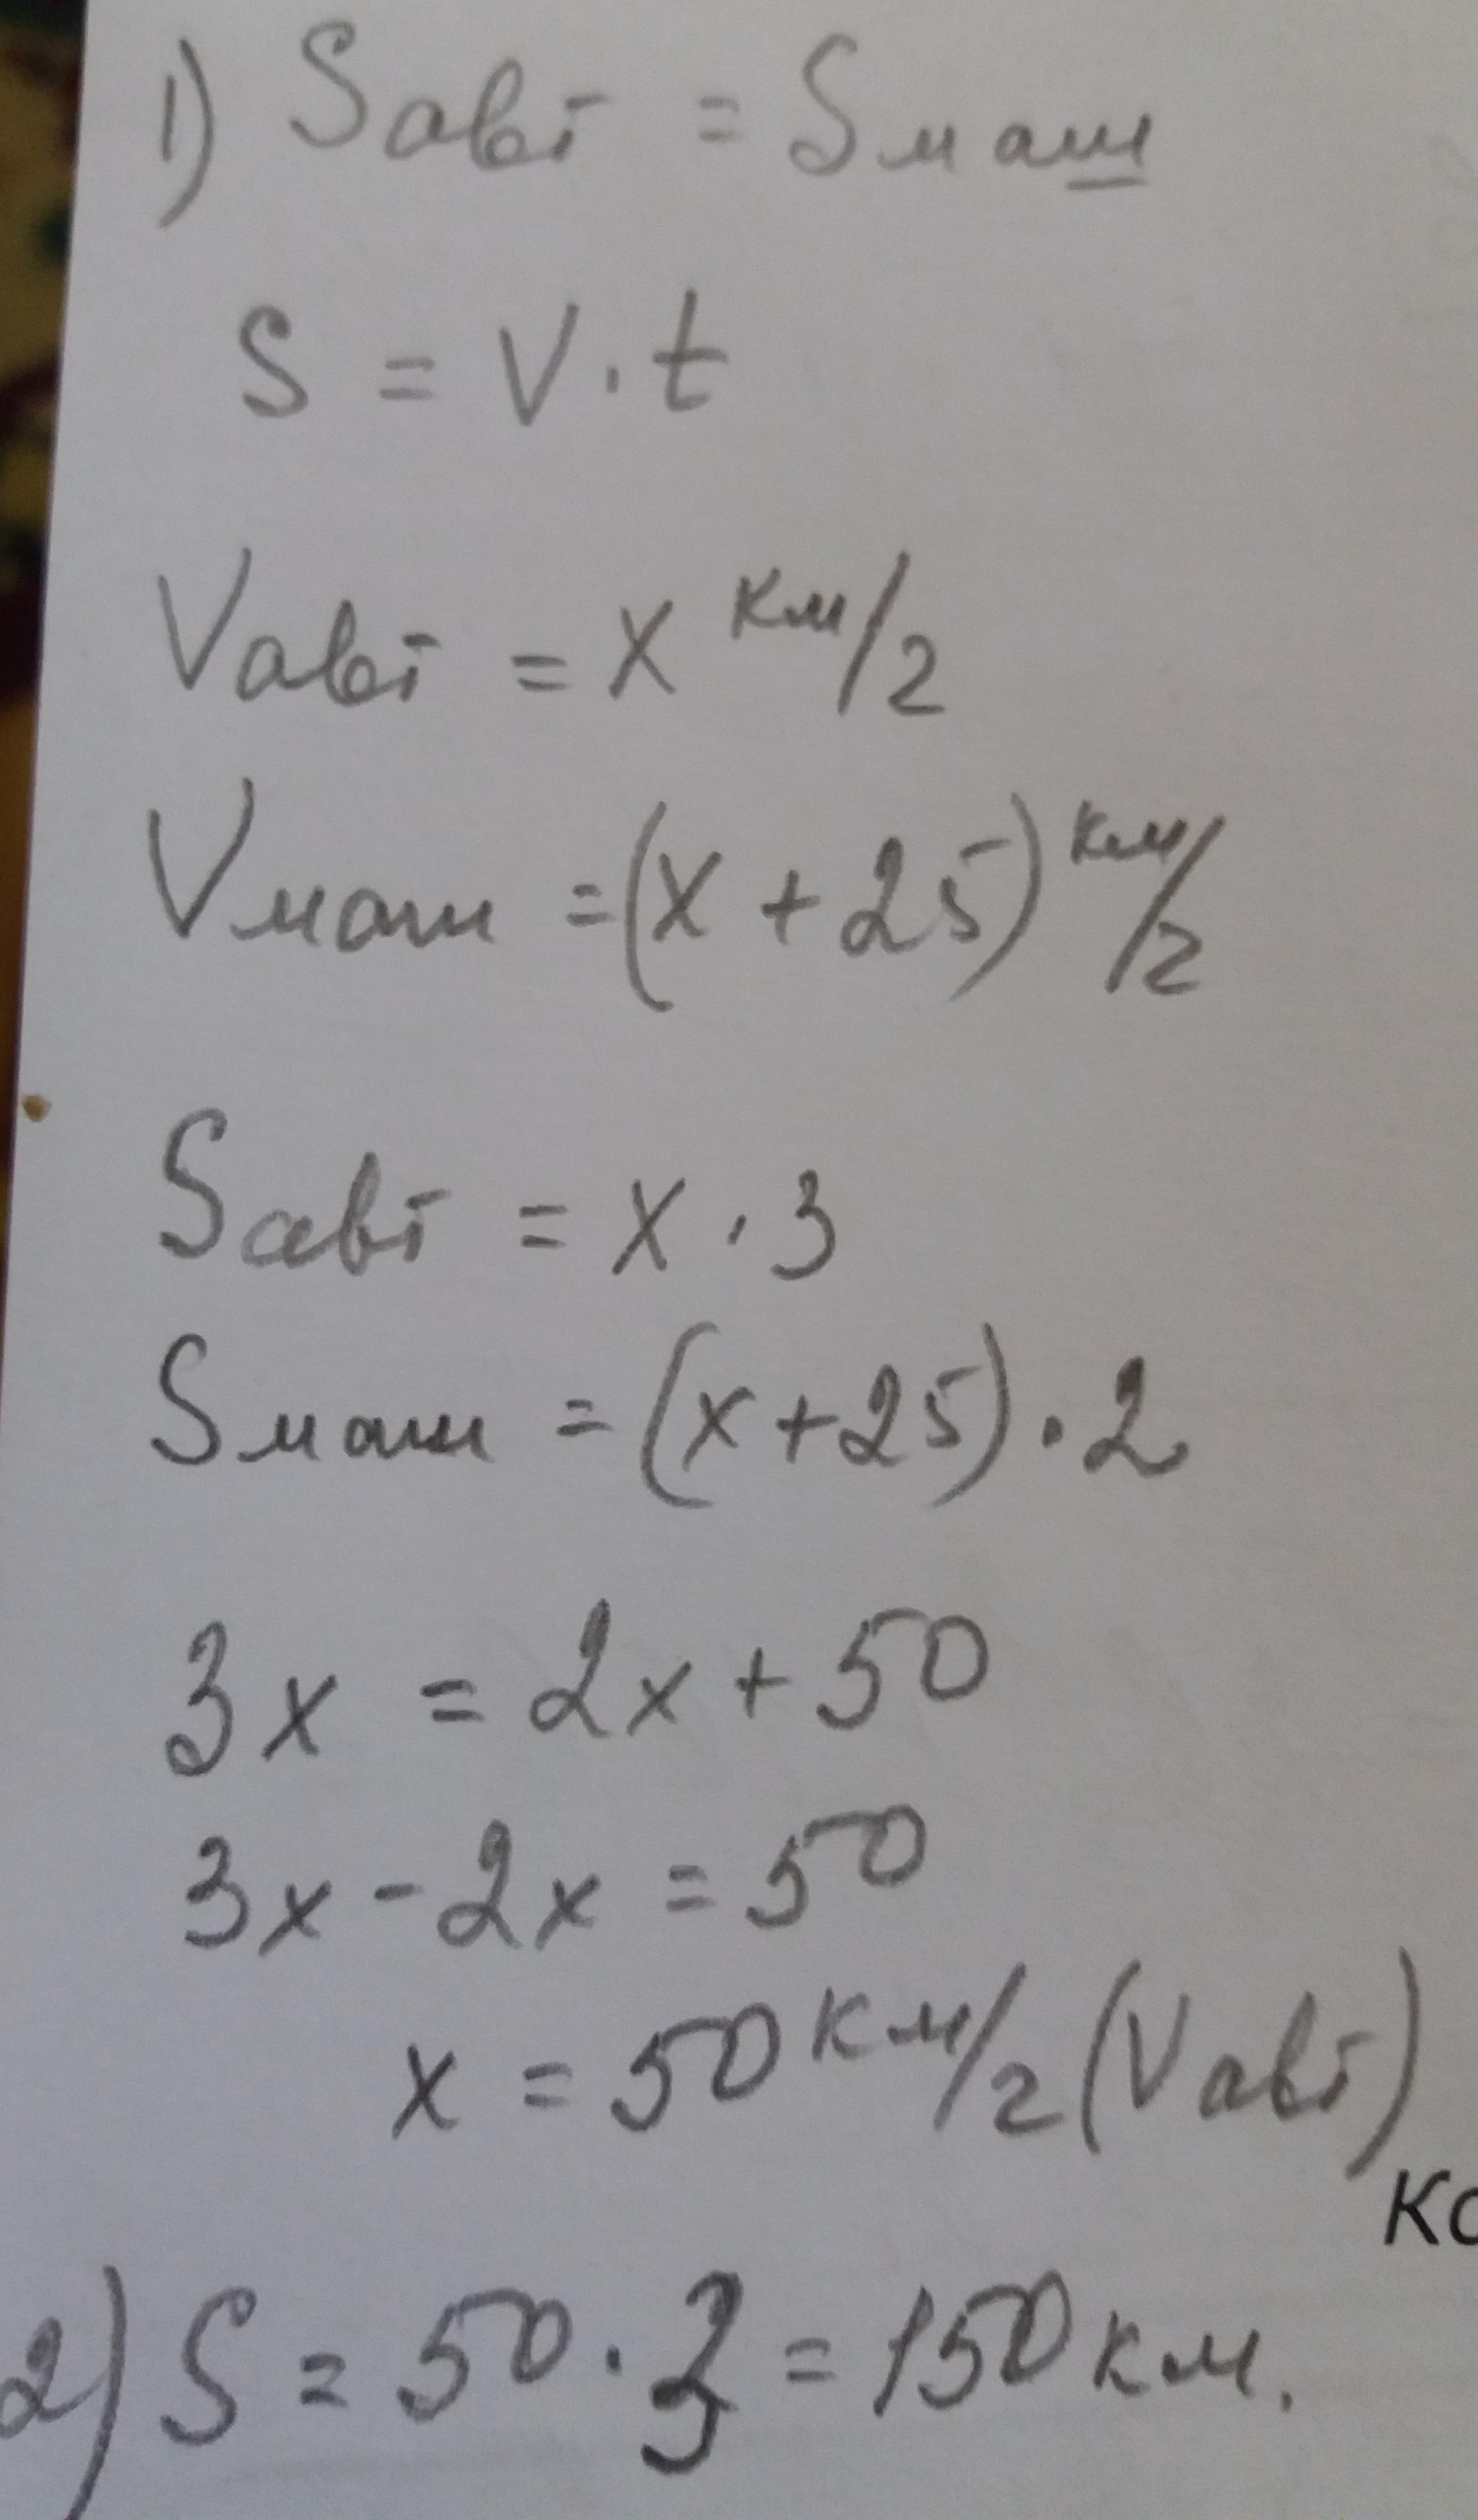 1) Sавт = Sмаш
S = V · t
Vавт = x км/г
Vмаш = (x + 25) км/г
Sавт = x · 3
Sмаш = (x + 25) · 2
3x = 2x + 50
3x - 2x = 50
x = 50 км/г (Vавт)
2) S = 50 · 3 = 150 км.